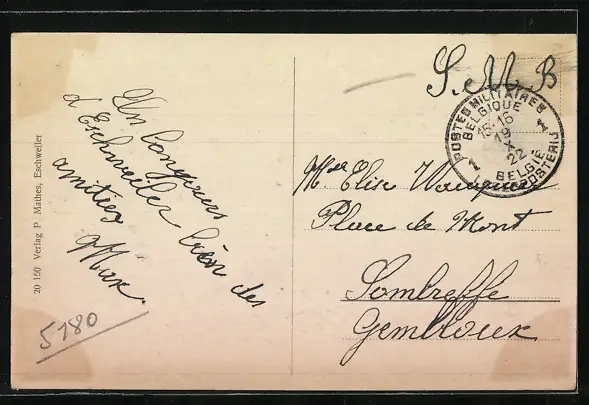 S. M. B
POSTES MILITAIRES
BELGIQUE
15-16
19
X
22
BELGIË
LEGERPOSTERIJ
1 1
Un
d'Eschweiler bien des
amitiés
Max.
Elise
Place de Mont
Sombreffe
Gembloux
20 160 Verlag P. Mathes, Eschweiler
5180